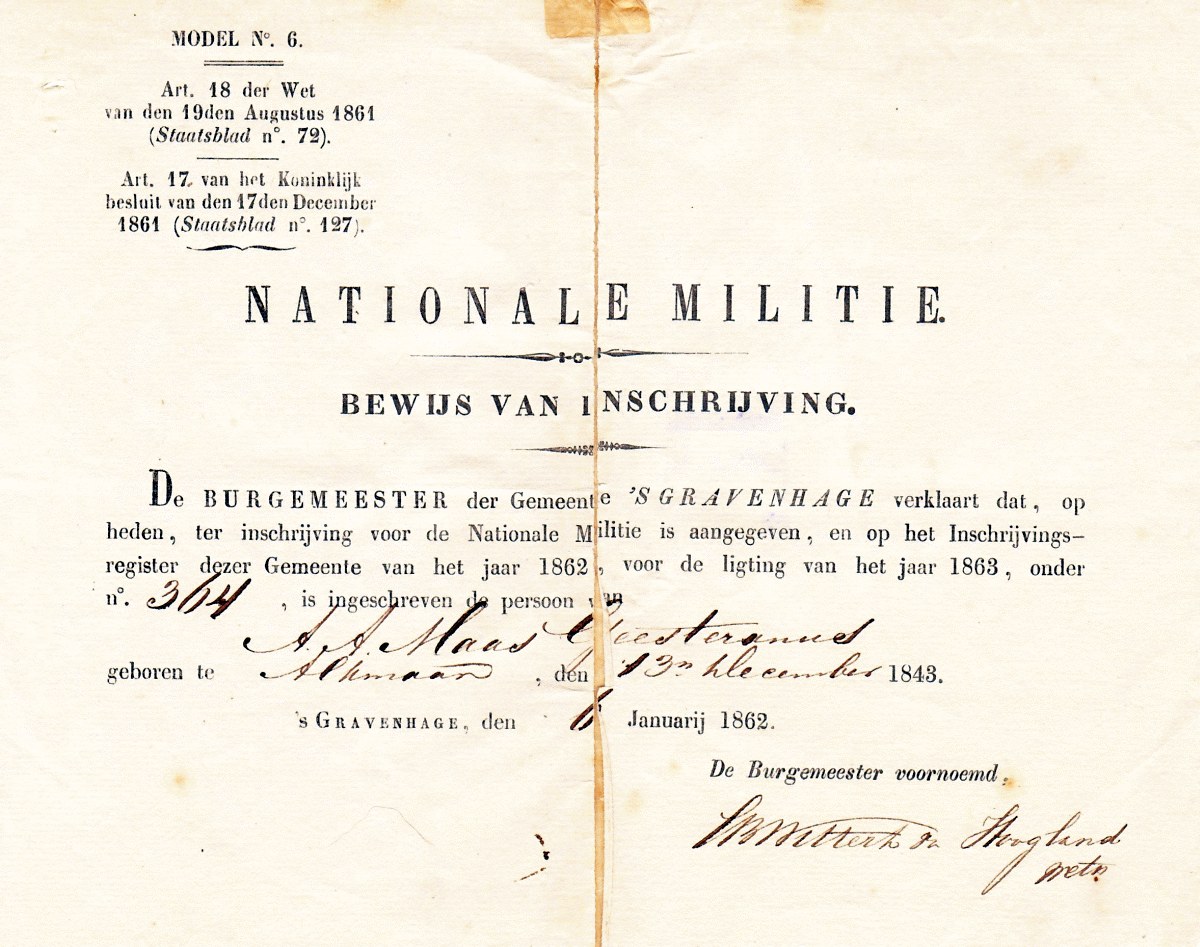 MODEL N°. 6.
Art. 18 der Wet
van den 19den Augustus 1861
(Staatsblad n°. 72).
Art. 17. van het Koninklijk
besluit van den 17den December
1861 (Staatsblad n°. 127).
NATIONALE MILITIE.
BEWIJS VAN INSCHRIJVING.
De BURGEMEESTER der Gemeente 'S GRAVENHAGE verklaart dat, op
heden, ter inschrijving voor de Nationale Militie is aangegeven, en op het Inschrijvings-
register dezer Gemeente van het jaar 1862, voor de ligting van het jaar 1863, onder
n°. 364, is ingeschreven de persoon van
A. A. Maas Geesteranus
geboren te Alkmaar, den 13n December 1843.
's GRAVENHAGE, den 6 Januarij 1862.
De Burgemeester voornoemd,
Hoogland
weth